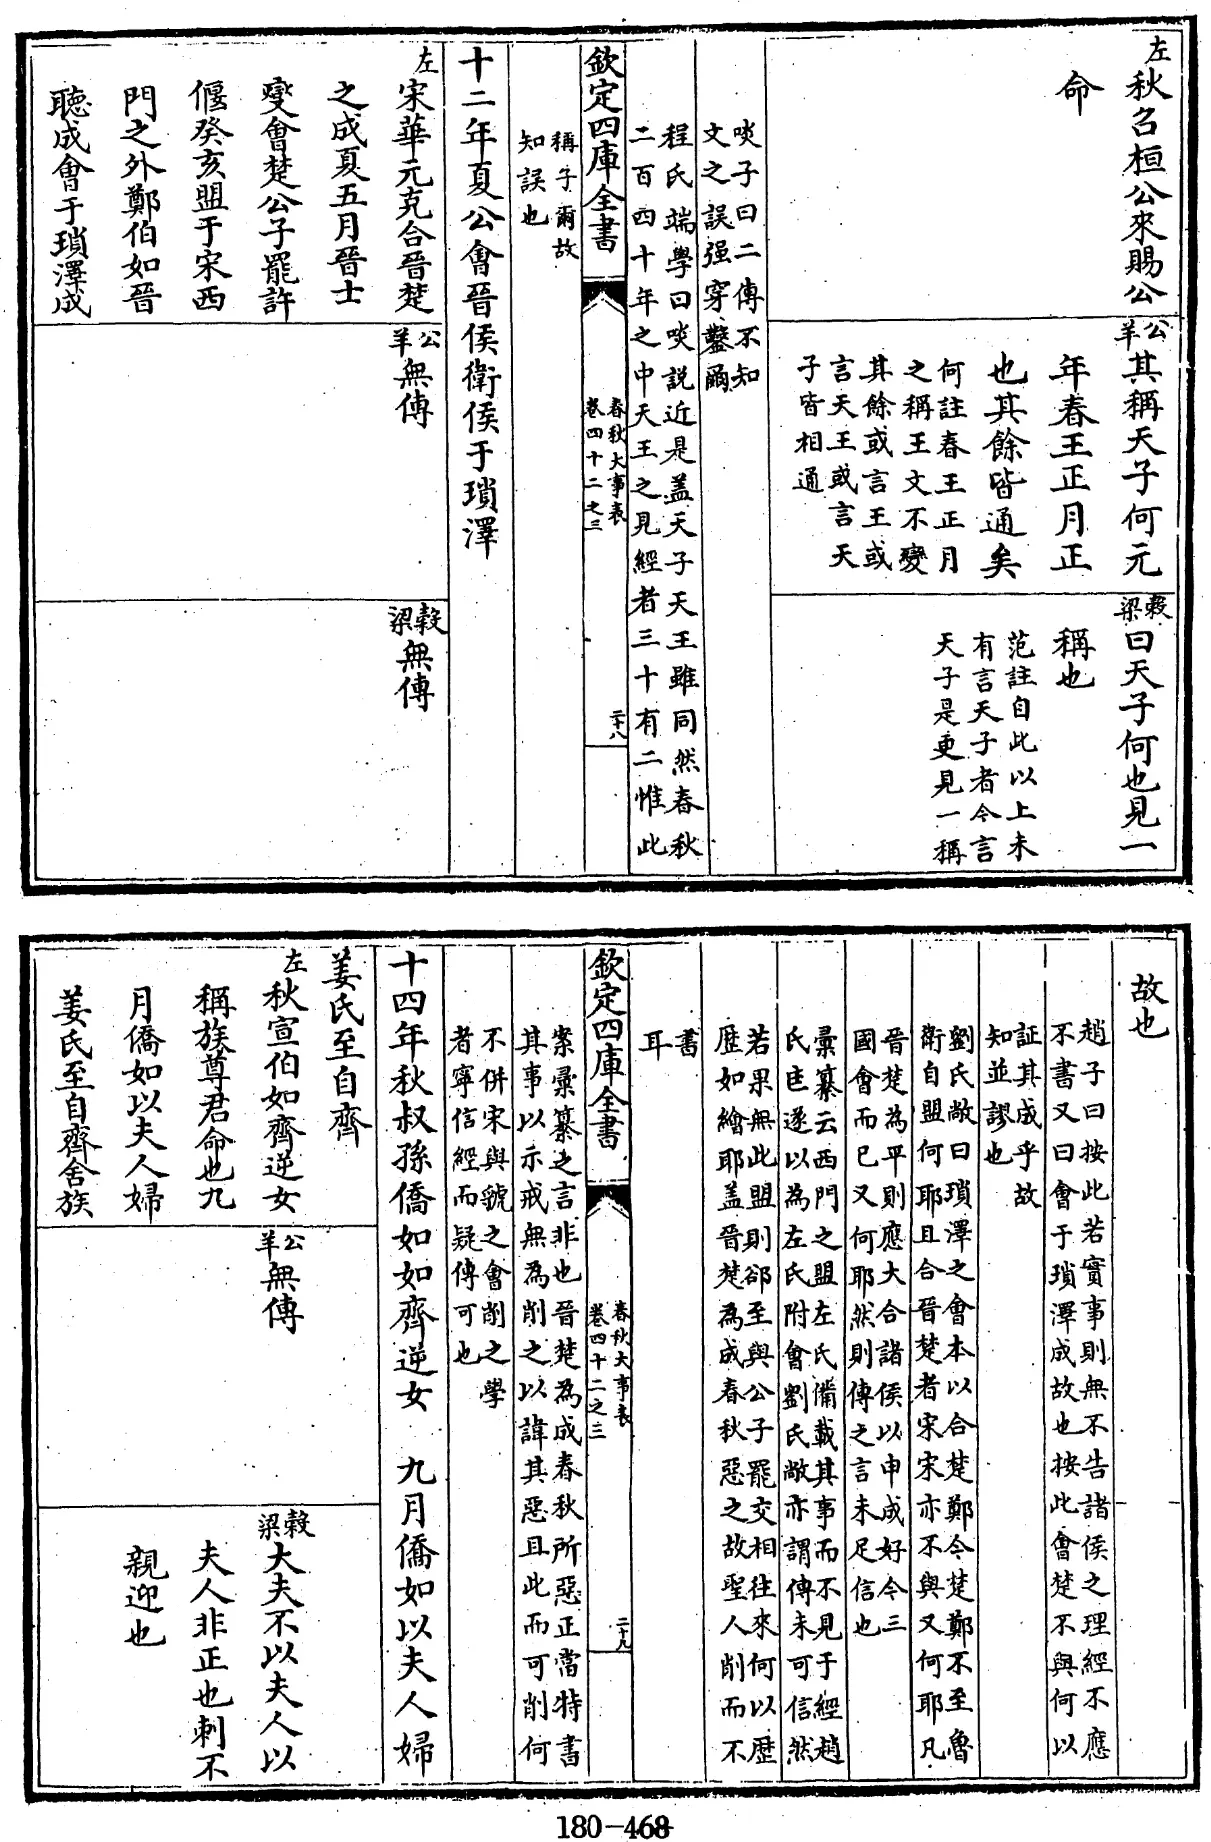 左秋召桓公來賜公
命
公羊其稱天子何元
年春王正月正
也其餘皆通矣
何註春王正月
之稱王文不變
其餘或言王或
言天王或言天
子皆相通
穀梁曰天子何也見一
稱也
范註自此以上未
有言天子者今言
天子是更見一稱
啖子曰二傳不知
文之誤强穿鑿爾
程氏端學曰啖説近是盖天子天王雖同然春秋
二百四十年之中天王之見經者三十有二惟此
欽定四庫全書
春秋大事表
卷四十二之三
二十八
稱子爾故
知誤也
十二年夏公會晉侯衛侯于瑣澤
左宋華元克合晉楚
之成夏五月晉士
燮會楚公子罷許
偃癸亥盟于宋西
門之外鄭伯如晉
聽成會于瑣澤成
公羊無傳
穀梁無傳
故也
趙子曰按此若實事則無不告諸侯之理經不應
不書又曰會于瑣澤成故也按此會楚不與何以
証其成乎故
知並謬也
劉氏敞曰瑣澤之會本以合楚鄭今楚鄭不至魯
衛自盟何耶且合晉楚者宋宋亦不與又何耶凡
晉楚為平則應大合諸侯以申成好今三
國會而已又何耶然則傳之言未足信也
彙纂云西門之盟左氏備載其事而不見于經趙
氏匡遂以為左氏附會劉氏敞亦謂傳未可信然
若果無此盟則郤至與公子罷交相往來何以歷
歷如繪耶盖晉楚為成春秋惡之故聖人削而不
書
耳
欽定四庫全書
春秋大事表
卷四十二之三
二十九
案彙纂之言非也晉楚為成春秋所惡正當特書
其事以示戒無為削之以諱其惡且此而可削何
不併宋與虢之會削之學
者寧信經而疑傳可也
十四年秋叔孫僑如如齊逆女 九月僑如以夫人婦
姜氏至自齊
左秋宣伯如齊逆女
稱族尊君命也九
月僑如以夫人婦
姜氏至自齊舍族
公羊無傳
穀梁大夫不以夫人以
夫人非正也刺不
親迎也
180-468